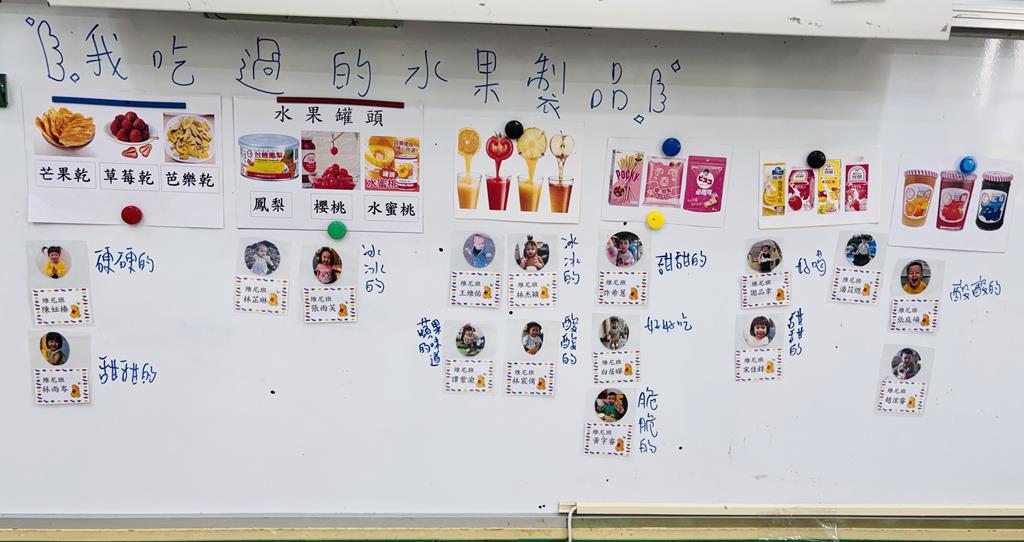 我吃過的水果製品
芒果乾 草莓乾 芭樂乾
水果罐頭
鳳梨 櫻桃 水蜜桃
POCKY
硬硬的
維尼班
甜甜的
維尼班
林雨岑
維尼班
維尼班
張雨芙
冰冰的
維尼班
王維佑
維尼班
林杰穎
冰冰的
蘋果的味道
維尼班
譚紫渝
維尼班
酸酸的
維尼班
許希蔓
甜甜的
維尼班
好好吃
維尼班
黃宇睿
脆脆的
維尼班
好喝
維尼班
維尼班
甜甜的
維尼班
張庭碩
酸酸的
維尼班